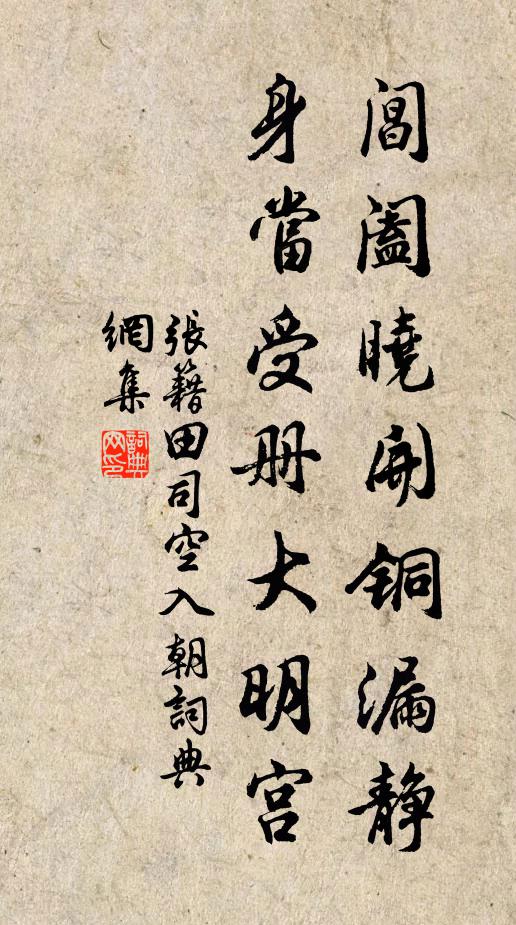 閶闔曉開铜漏静
身當受册大明宫
張籍田司空入朝詞典
網集
詞典
网印